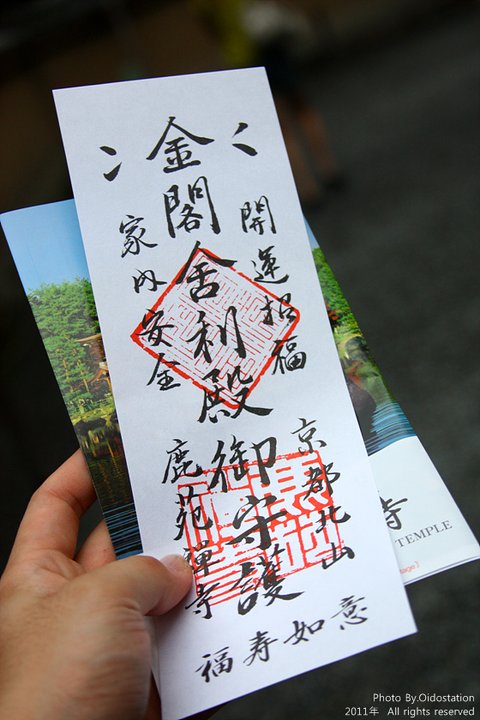 開運招福
京都北山
金閣舎利殿御守護
家内安全
鹿苑禅寺
福寿如意
寺
TEMPLE
Photo By.Oidostation
2011年 All rights reserved